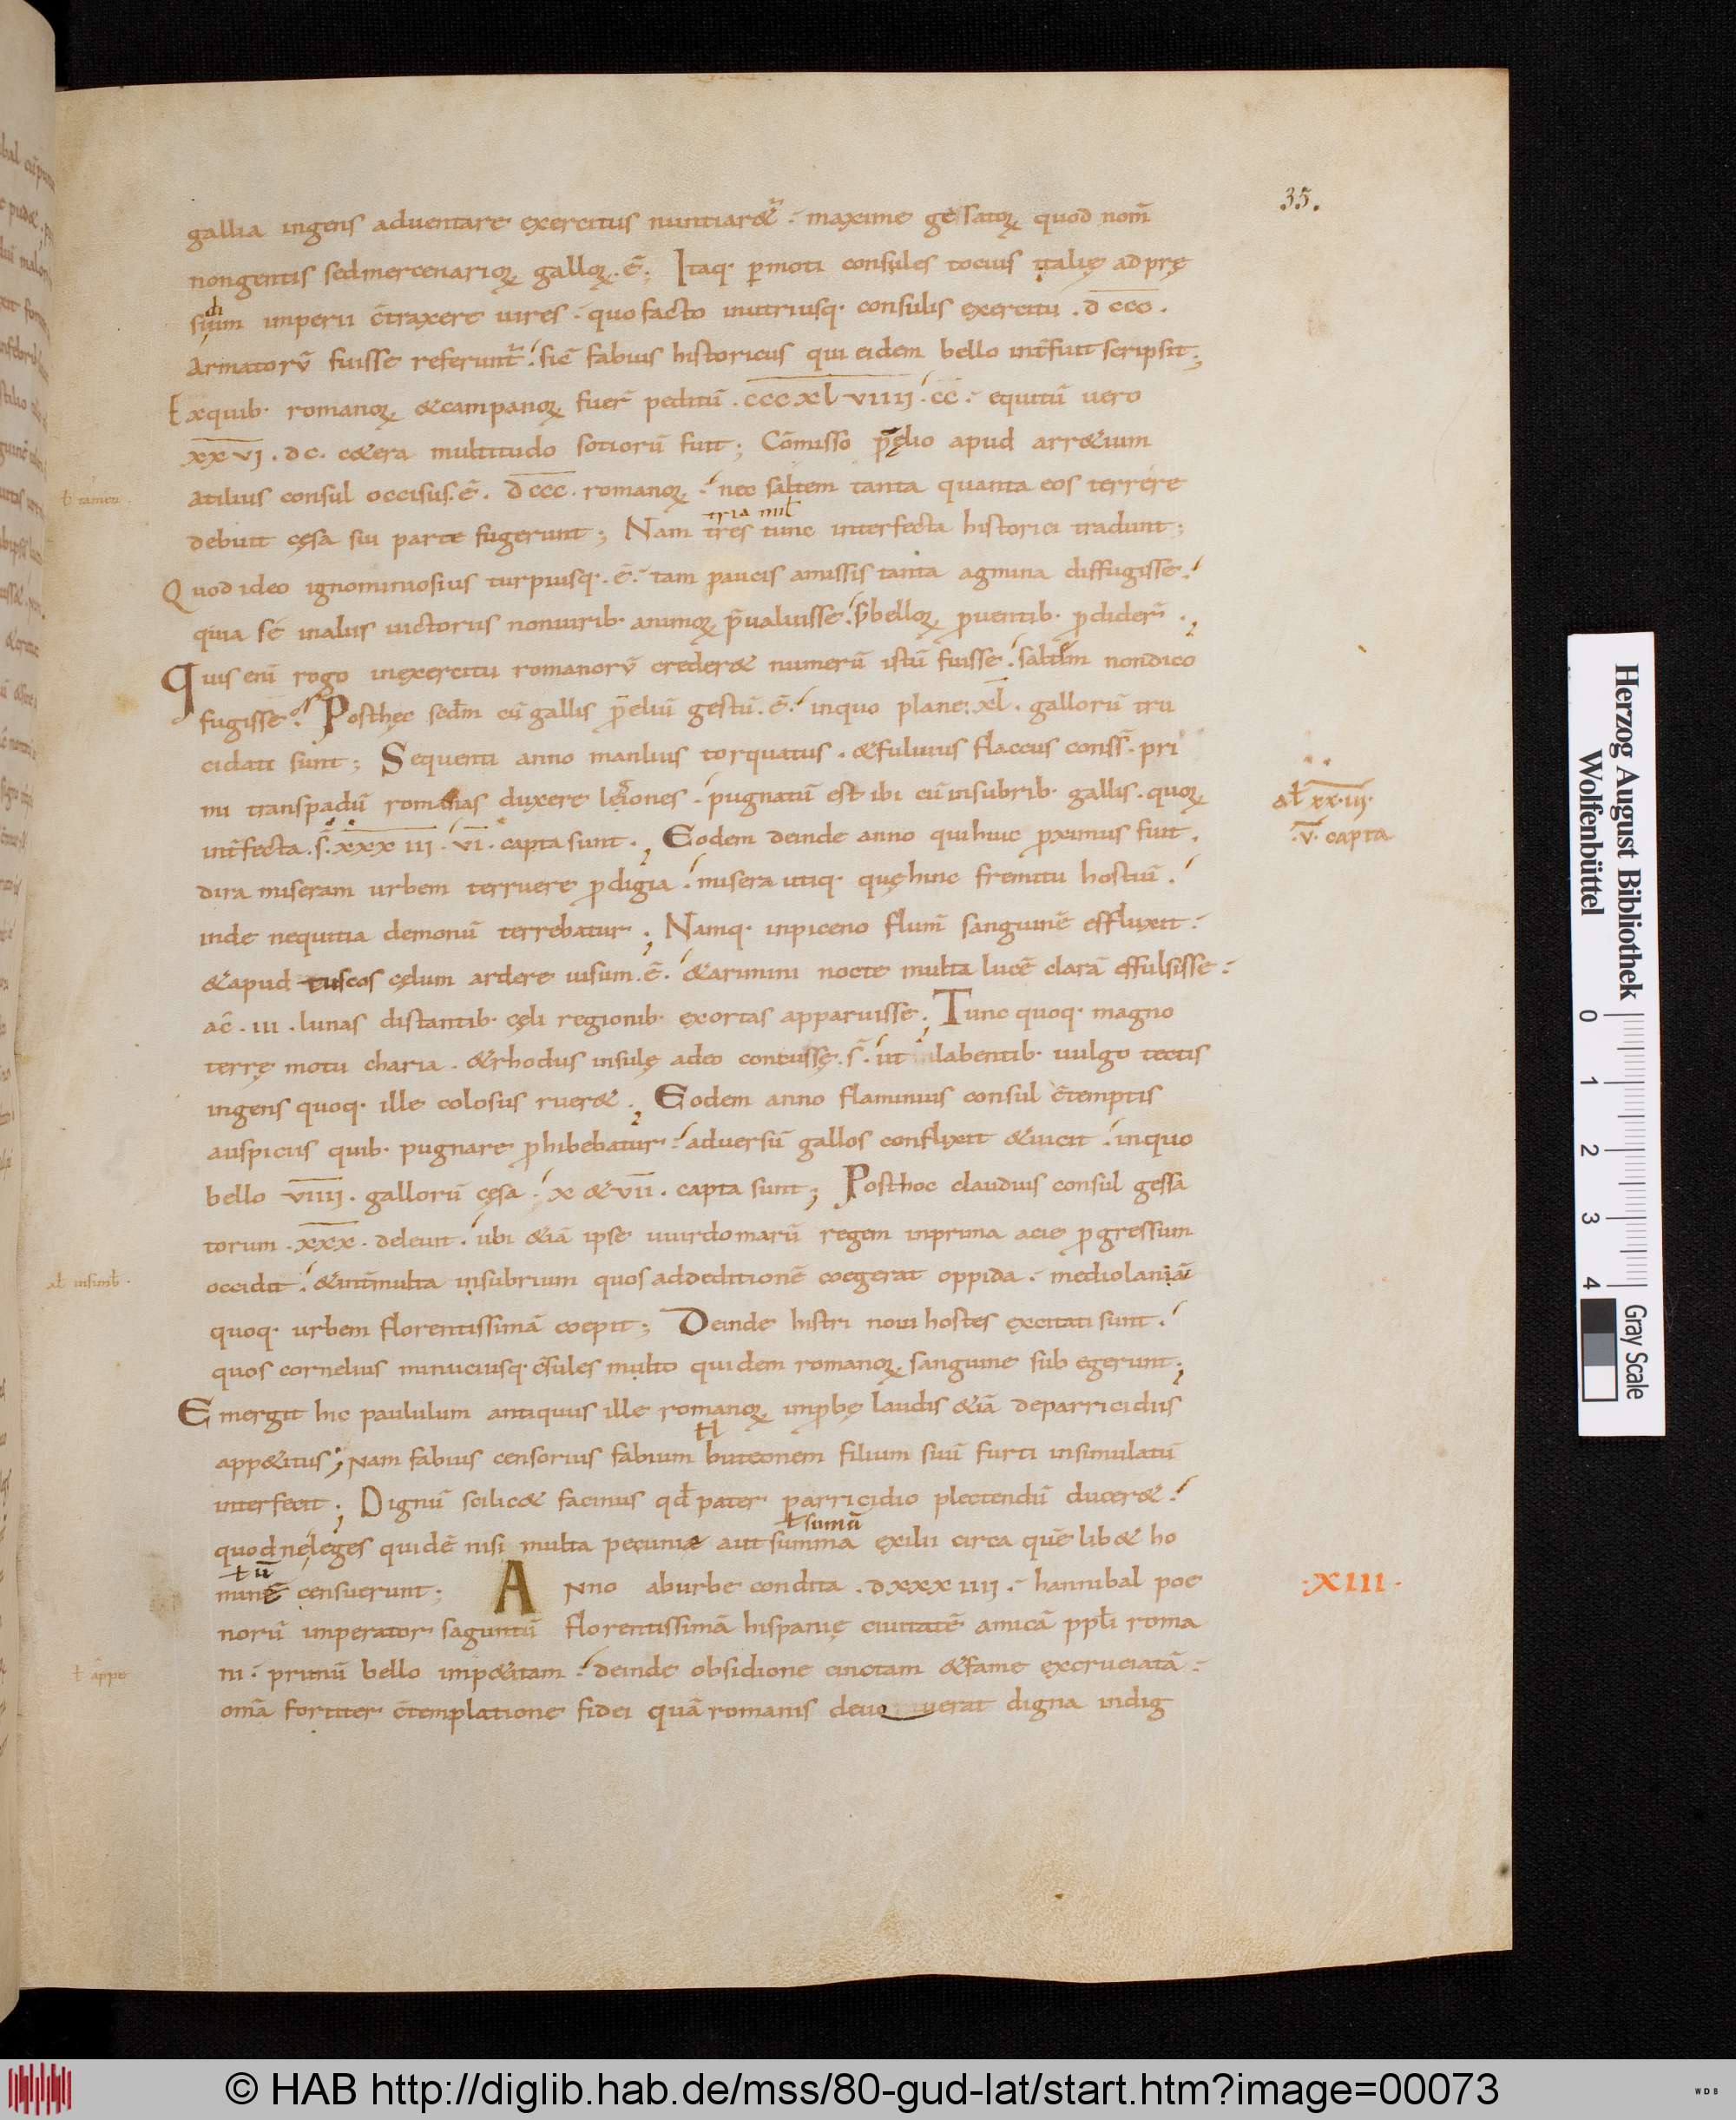 35.
gallia ingens aduentare exercitus nuntiar&ᷣ. maxime gessatoꝝ quod nom̄
nongentis sedmercenarioꝝ galloꝝ. ē; Itaq· ꝑmoti consules tocius italię adprę
sidium imperii c̄traxere uires. quo facto inutriusq· consulis exercitu . dccc .
armatorū fuisse referunt̄. sic̄ fabius historicus qui eidem bello int̄fuit scripsit;
Exquib· romanoꝝ &campanoꝝ fuer̄ peditū . cccxlviiii . cc . equitū uero
xxvi . dc . c&era multitudo sotiorū fuit; Cōmisso p̄ęlio apud arr&ium
ł tamen .
atilius consul occisus. ē . dccc . romanoꝝ . nec saltem tanta quanta eos terrere
tria mil̄
debuit cęsa sui parte fugerunt; Nam tres tunc interfecta historici tradunt;
Quod ideo ignominiosius turpiusq· ē. tam paucis amissis tanta agmina diffugisse.
quia se inaliis uictoriis nonuirib· animoꝝ p̄ualuisse. s; belloꝝ ꝓuentib· ꝓdider̄ .;
Quis eni rogo inexercitu romanorū creder& numerū istū fuisse. saltim nondico
fugisse. Posthęc sedm̄ cū gallis p̄eliū gestū. ē. inquo plane. xl . gallorū tru
cidati sunt; Sequenti anno manlius torquatus . &fuluius flaccus conss̄. pri
mi transpadū romanas duxere legiones. pugnatū est ibi cū insubrib· gallis. quoꝝ
al̄ xx·iii·
·v· capta
int̄fecta. s̄. xxxiii . vi . capta sunt .; Eodem deinde anno qui huic ꝓximus fuit .
dira miseram urbem terruere ꝓdigia. misera utiq· quę hinc fremitu hostiū .
inde nequitia demonū terrebatur .; Namq· inpiceno flum̄ sanguinē effluxit.
&apud tuscos cęlum ardere uisum. ē. &arimini nocte multa lucē clarā effulsisse.
ac̄ . iii . lunas distantib· cęli regionib· exortas apparuisse.; Tunc quoq· magno
terrę motu charia . &rhodus insulę adeo concussę. s̄. ut labentib· uulgo tectis
ingens quoq· ille colosus ruer& .; Eodem anno flaminius consul c̄temptis
auspiciis quib· pugnare ꝓhibebatur. aduersū gallos conflixit &uicit. inquo
bello viiii . gallorū cęsa . x &vii . capta sunt; Posthoc claudius consul gessā
torum . xxx . deleuit . ubi &iā ipse uuirdomarū regem inprima acie ꝓgressum
al̄ insimb̄ .
occidit. &int̄multa insubrium quos addeditionē coegerat oppida. mediolaniā
quoq· urbem florentissimā coepit; Deinde histri noui hostes excitati sunt.
quos cornelius minuciusq· c̄sules multo quidem romanoꝝ sanguine sub egerunt;
Emergit hic paululum antiquus ille romanoꝝ imꝓbę laudis &iā deparricidiis
app&itus; Nam fabius censorius fabium buteonem filium suū furti insimulatū
interfecit .; Dignū scilic& facinus qđ pater parricidio plectendū ducer&.
ł sumā
quod ne leges quidē nisi multa pecuniæ aut summa exilii circa quē lib& ho
ł ū
minē censuerunt; Anno aburbe condita . dxxxiiii . hannibal poe
·XIII·
norū imperator saguntū florentissimā hispanię ciuitatē amicā ppl̄i roma
ł appe
ni. primū bello imp&itam. deinde obsidione cinctam &fame excruciatā.
omā fortiter c̄templatione fidei quā romanis deuo uerat digna indig
Herzog August Bibliothek
Wolfenbüttel
0 1 2 3 4
Gray Scale
© HAB http://diglib.hab.de/mss/80-gud-lat/start.htm?image=00073
WDB